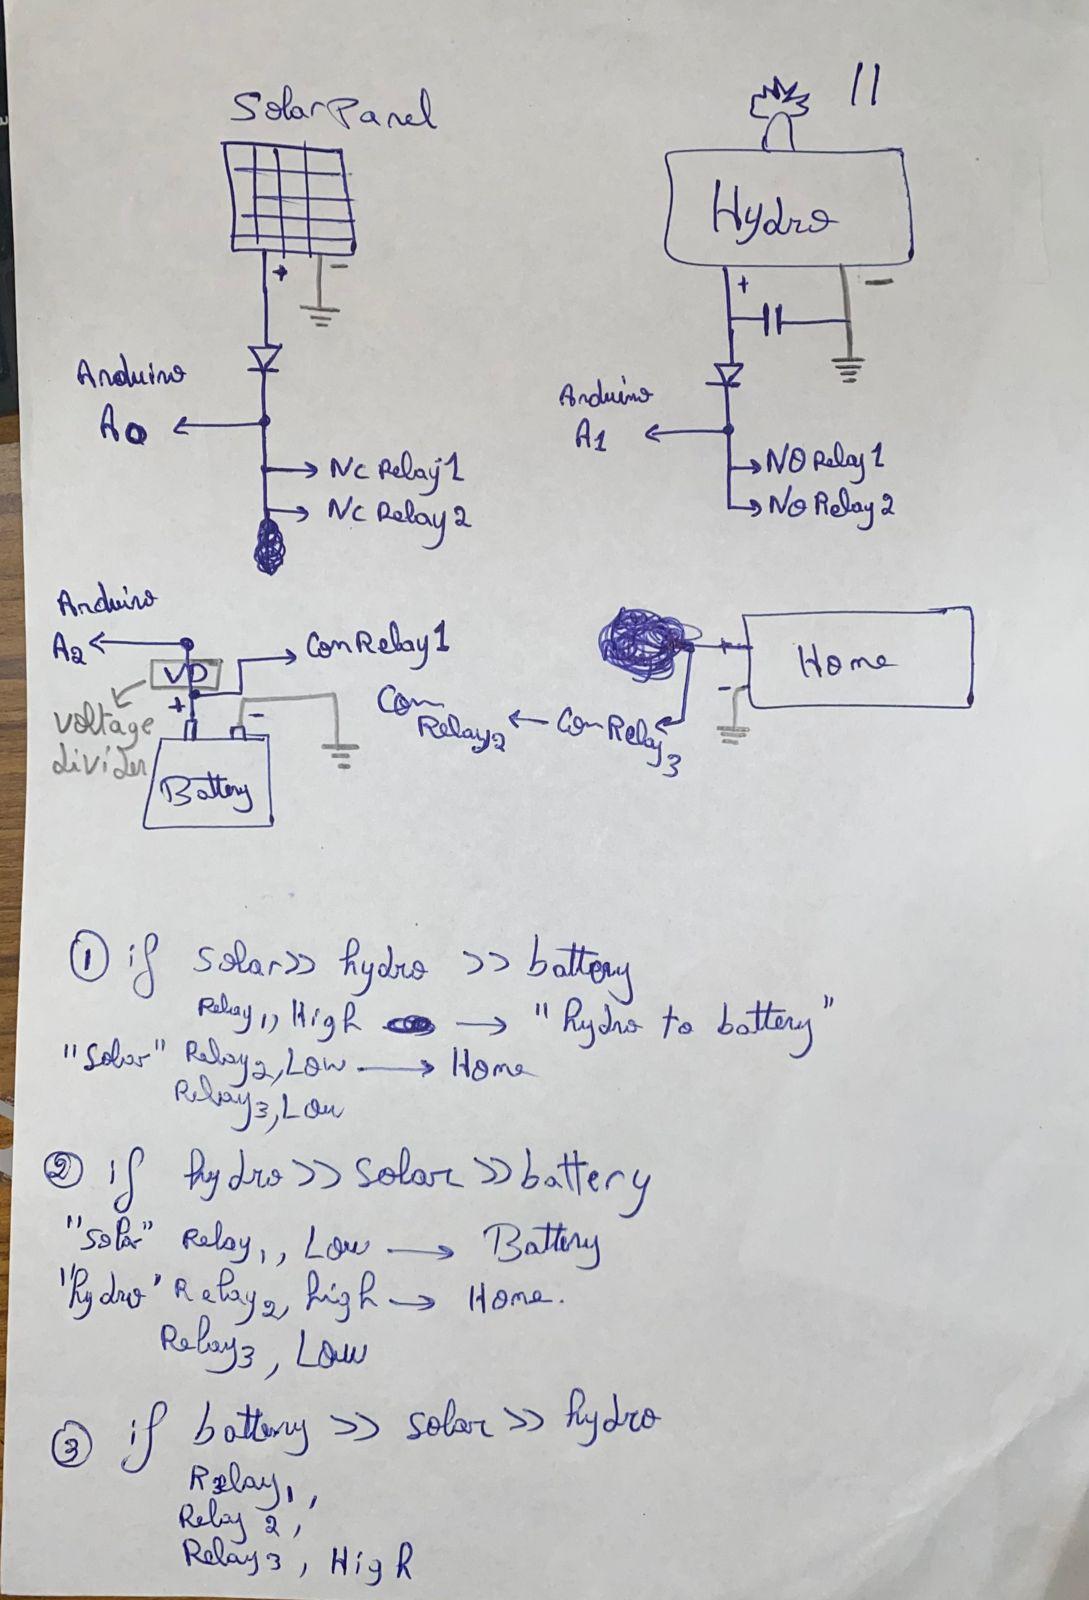 Solar Panel
11
Hydro
+
-
+
-
Arduino
A0
NC Relay 1
NC Relay 2
Arduino
A1
NO Relay 1
NO Relay 2
Arduino
A2
VD
voltage
divider
Com Relay 1
+
-
Battery
Home
+
-
Com
Relay2
Com Relay3
① if solar >> hydro >> battery
Relay1, High → "hydro to battery"
"Solar" Relay2, Low → Home
Relay3, Low
② if hydro >> solar >> battery
"solar" Relay1, Low → Battery
"hydro" Relay2, high → Home.
Relay3, Low
③ if battery >> solar >> hydro
Relay1,
Relay 2,
Relay3, High